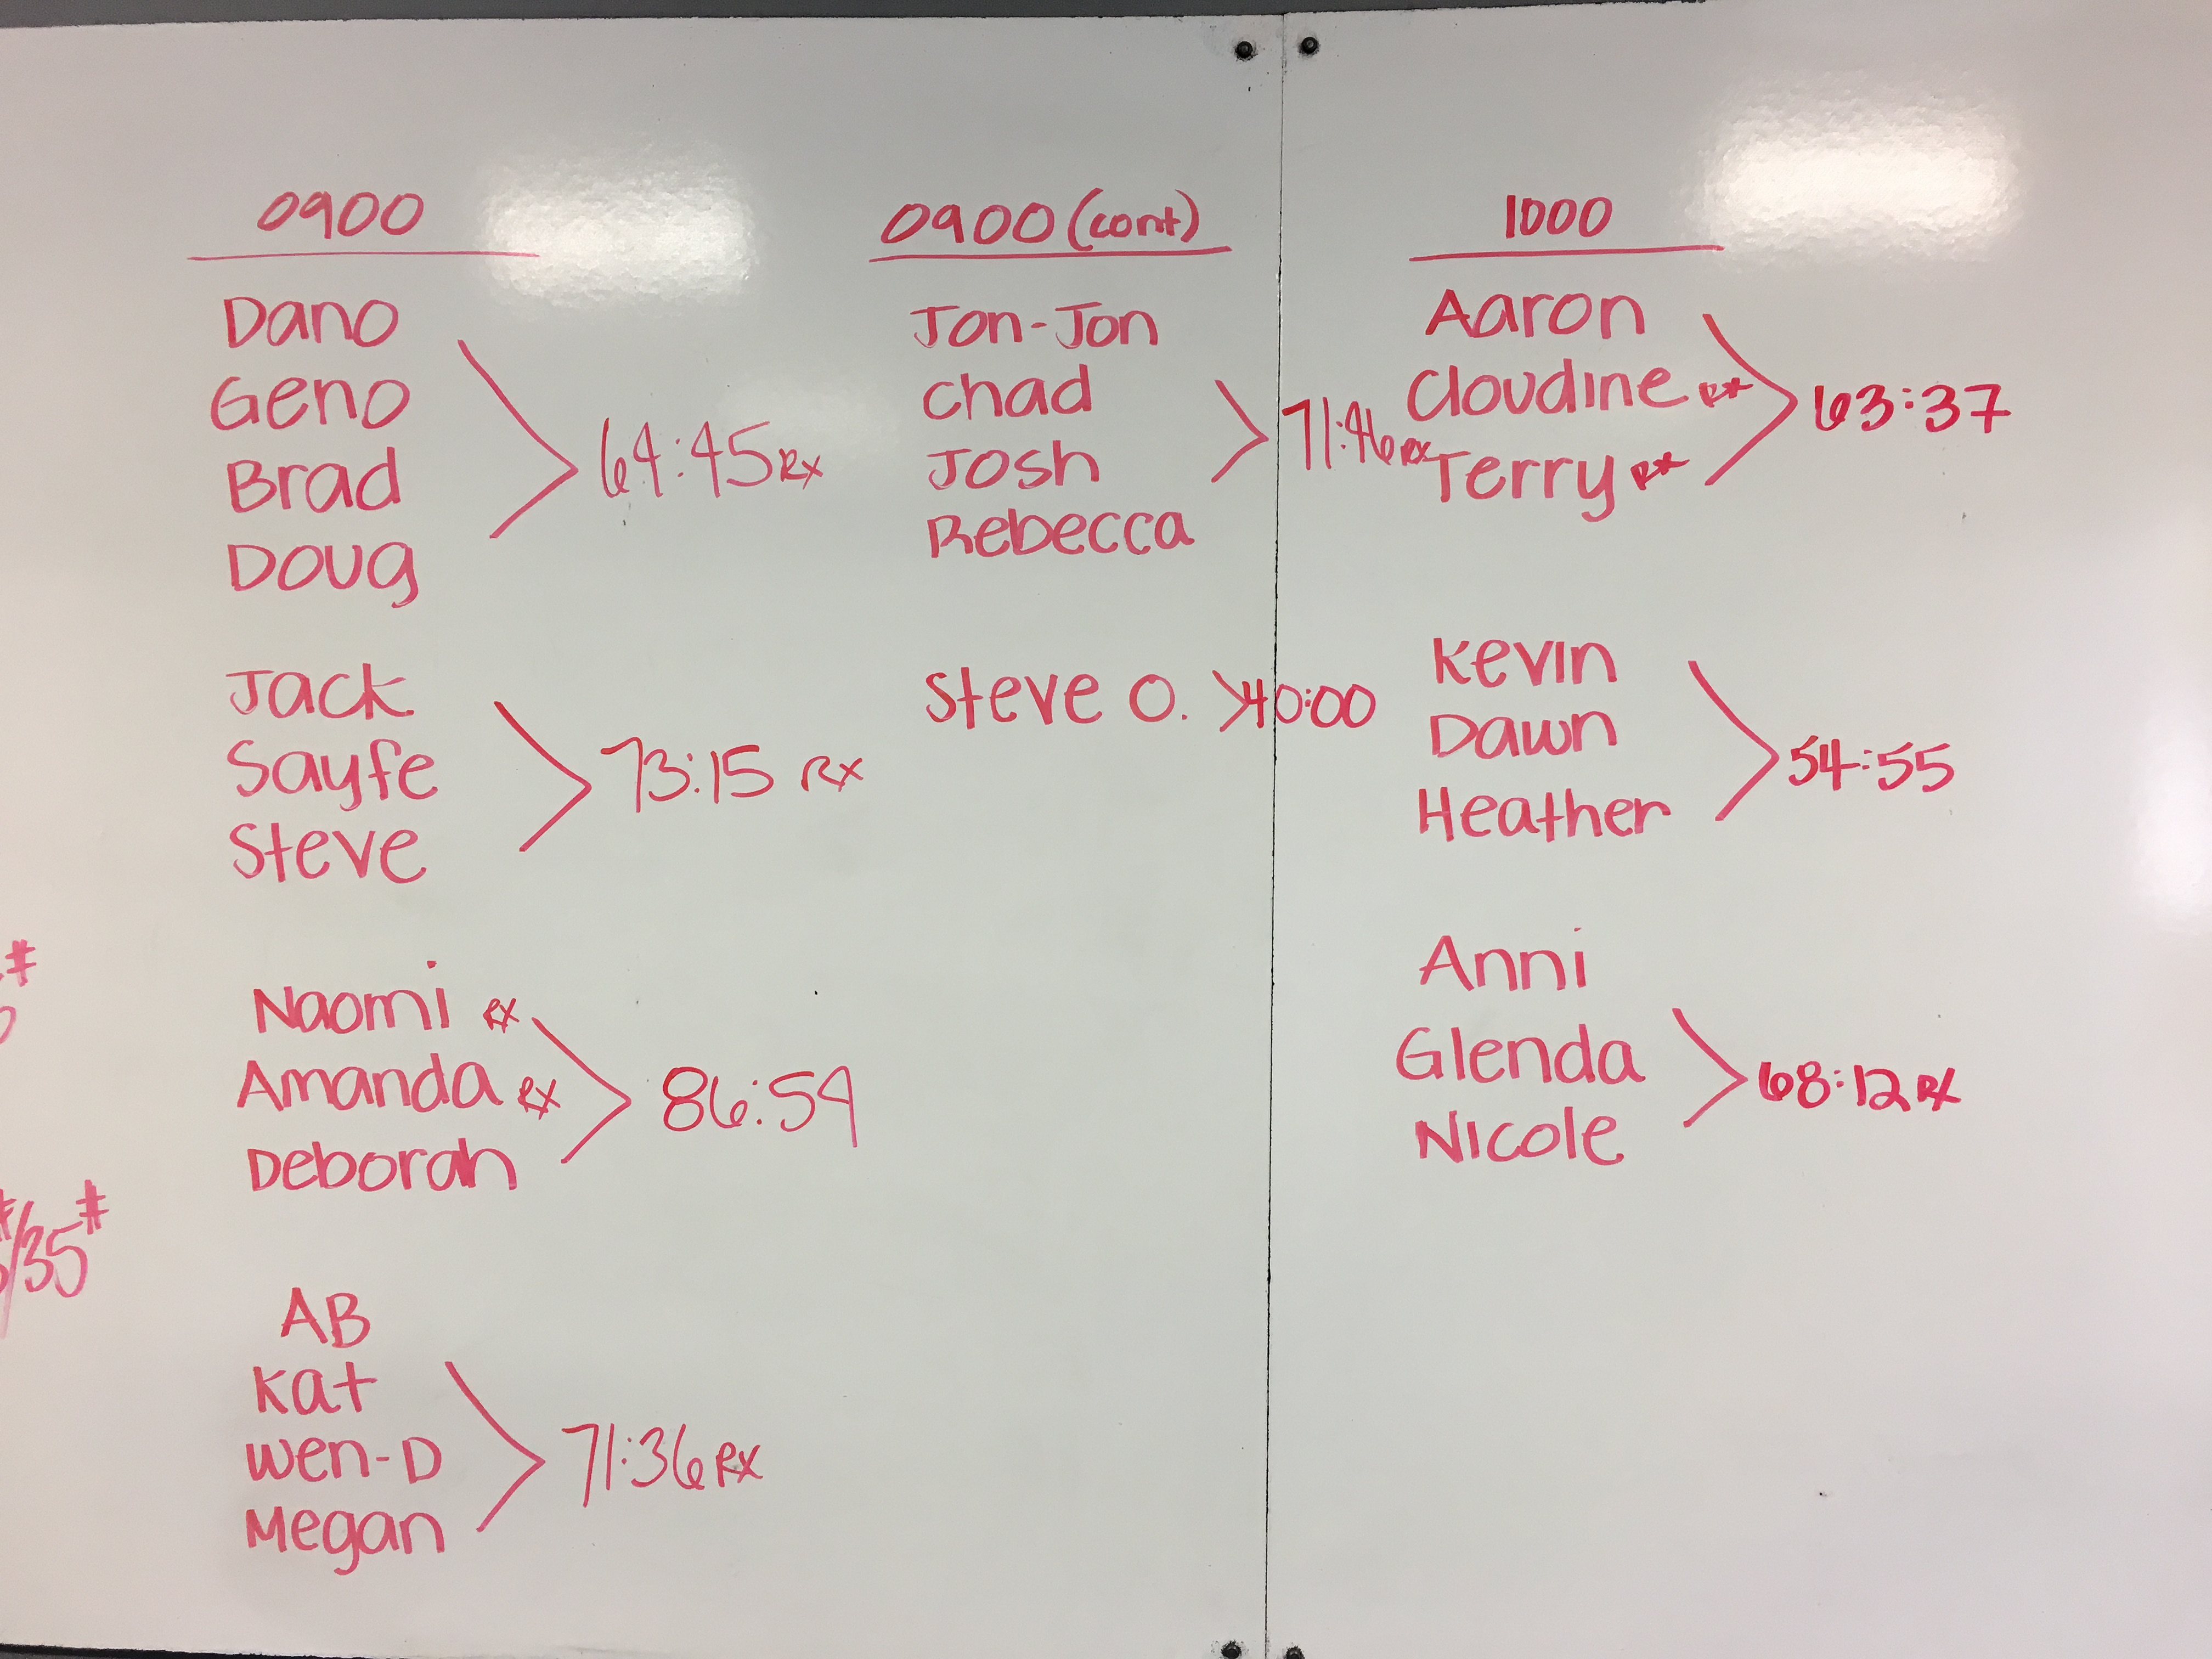 0900
Dano
Geno
Brad
Doug
64:45 Rx
Jack
Sayfe
Steve
73:15 Rx
Naomi Rx
Amanda Rx
Deborah
86:59
AB
Kat
Wen-D
Megan
71:36 Rx
0900 (cont)
Jon-Jon
Chad
Josh
Rebecca
71:46 Rx
Steve O. >40:00
1000
Aaron
Cloudine Rx
Terry Rx
63:37
Kevin
Dawn
Heather
54:55
Anni
Glenda
Nicole
68:12 Rx
#
#/35#